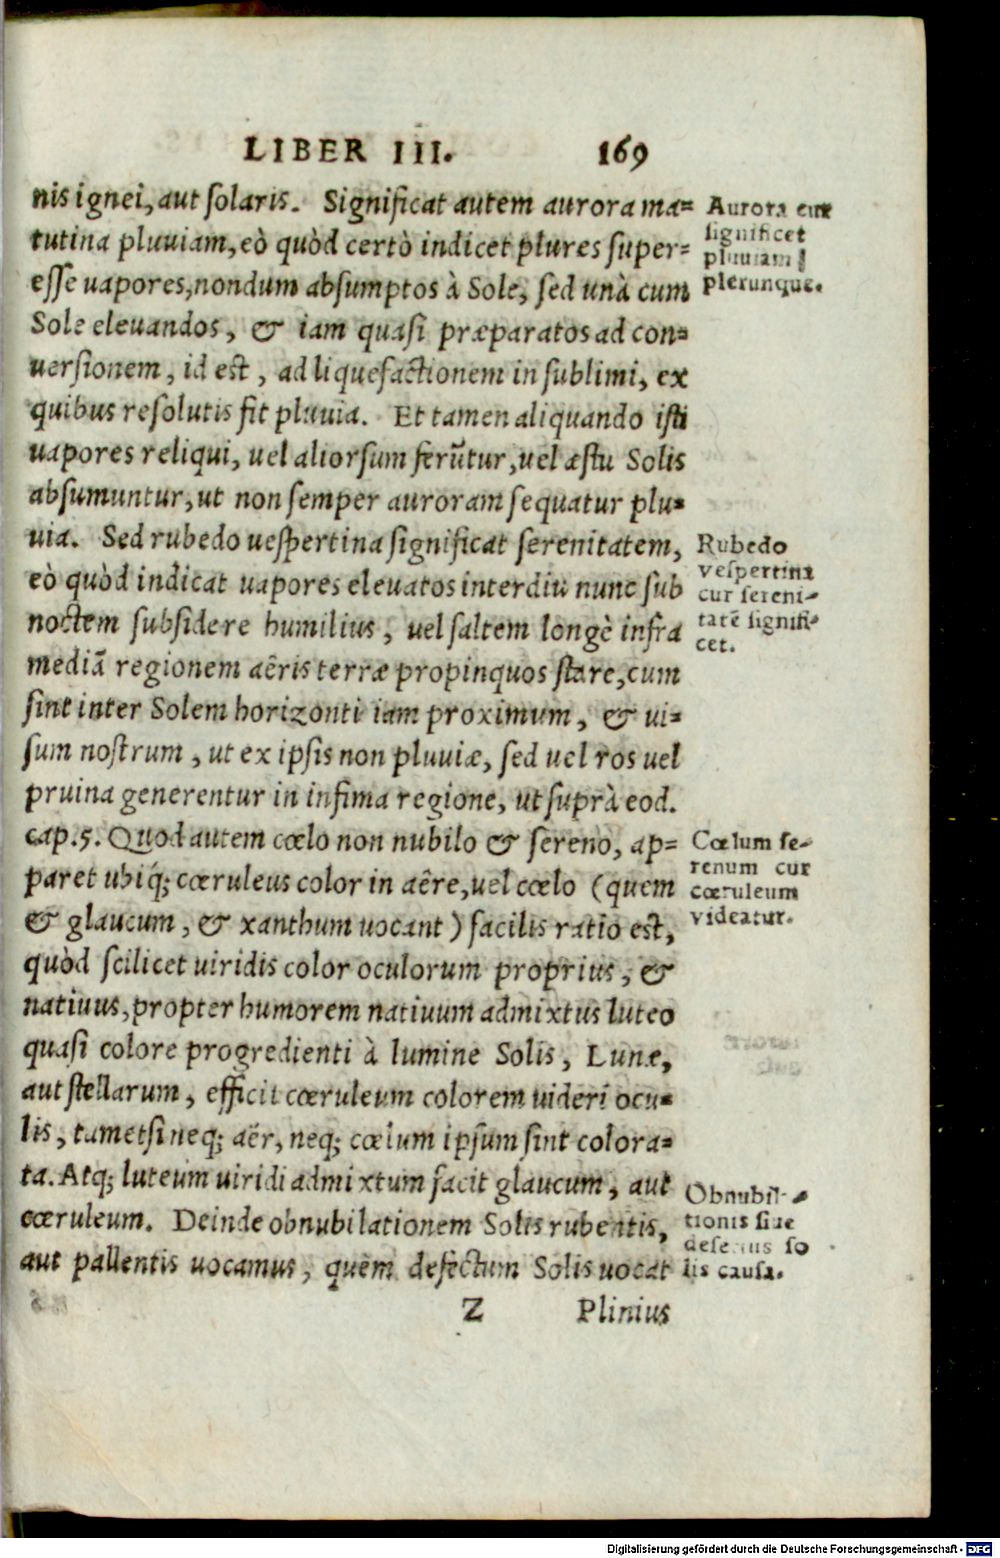 LIBER III. 169
nis ignei, aut solaris. Significat autem aurora ma=
tutina pluuiam, eò quòd certò indicet plures super=
esse uapores, nondum absumptos à Sole, sed unà cum
Sole eleuandos, & iam quasi præparatos ad con=
uersionem, id est, ad liquefactionem in sublimi, ex
quibus resolutis fit pluuia. Et tamen aliquando isti
uapores reliqui, uel aliorsum ferūtur, uel æstu Solis
absumuntur, ut non semper auroram sequatur plu=
uia. Sed rubedo uespertina significat serenitatem,
eò quòd indicat uapores eleuatos interdiu nunc sub
noctem subsidere humilius, uel saltem longè infra
mediā regionem aëris terræ propinquos stare, cum
sint inter Solem horizonti iam proximum, & ui=
sum nostrum, ut ex ipsis non pluuiæ, sed uel ros uel
pruina generentur in infima regione, ut suprà eod.
cap. 5. Quod autem cœlo non nubilo & sereno, ap=
paret ubiq́; cœruleus color in aëre, uel cœlo (quem
& glaucum, & xanthum uocant) facilis ratio est,
quòd scilicet uiridis color oculorum proprius, &
natiuus, propter humorem natiuum admixtus luteo
quasi colore progredienti à lumine Solis, Lunæ,
aut stellarum, efficit cœruleum colorem uideri ocu=
lis, tametsi neq; aër, neq; cœlum ipsum sint colora=
ta. Atq; luteum uiridi admixtum facit glaucum, aut
cœruleum. Deinde obnubilationem Solis rubentis,
aut pallentis uocamus, quem defectum Solis uocat
Z Plinius
Aurora cur
significet
pluuiam
plerunque.
Rubedo
vespertina
cur sereni-
tatē signifi-
cet.
Cœlum se-
renum cur
cœruleum
videatur.
Obnubil-
tionis siue
defectus so
lis causa.
Digitalisierung gefördert durch die Deutsche Forschungsgemeinschaft - DFG